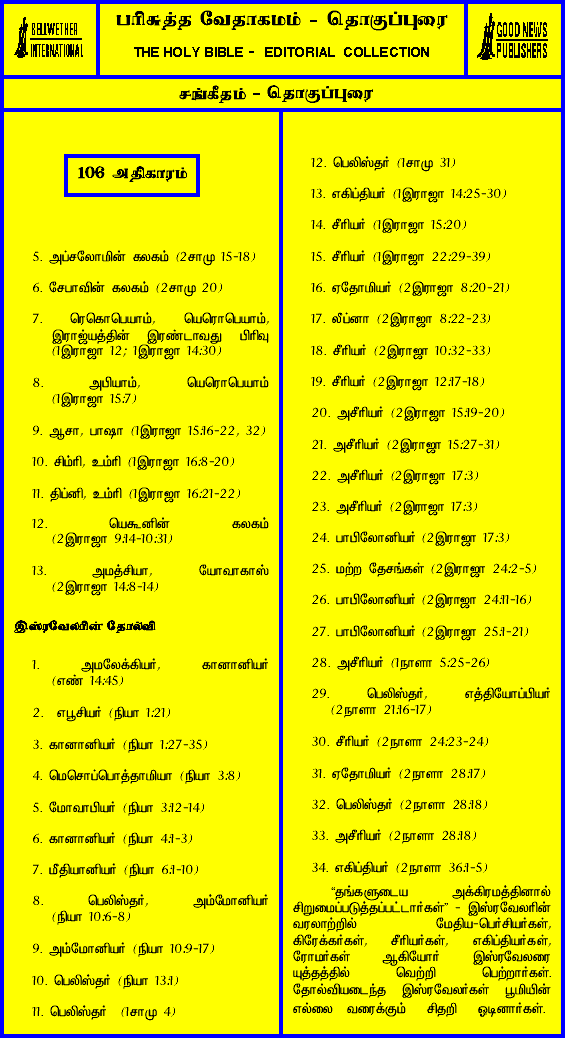 BELLWETHER
INTERNATIONAL
பரிசுத்த வேதாகமம் - தொகுப்புரை
THE HOLY BIBLE - EDITORIAL COLLECTION
GOOD NEWS
PUBLISHERS
சங்கீதம் - தொகுப்புரை
106 அதிகாரம்
5. அப்சலோமின் கலகம் (2சாமு 15-18)
6. சேபாவின் கலகம் (2சாமு 20)
7. ரெகொபெயாம், யெரொபெயாம்,
இராஜ்யத்தின் இரண்டாவது பிரிவு
(1இராஜா 12; 1இராஜா 14:30)
8. அபியாம், யெரொபெயாம்
(1இராஜா 15:7)
9. ஆசா, பாஷா (1இராஜா 15:16-22, 32)
10. சிம்ரி, உம்ரி (1இராஜா 16:8-20)
11. திப்னி, உம்ரி (1இராஜா 16:21-22)
12. யெகூனின் கலகம்
(2இராஜா 9:14-10:31)
13. அமத்சியா, யோவாகாஸ்
(2இராஜா 14:8-14)
இஸ்ரவேலரின் தோல்வி
1. அமலேக்கியர், கானானியர்
(எண் 14:45)
2. எபூசியர் (நியா 1:21)
3. கானானியர் (நியா 1:27-35)
4. மெசொப்பொத்தாமியா (நியா 3:8)
5. மோவாபியர் (நியா 3:12-14)
6. கானானியர் (நியா 4:1-3)
7. மீதியானியர் (நியா 6:1-10)
8. பெலிஸ்தர், அம்மோனியர்
(நியா 10:6-8)
9. அம்மோனியர் (நியா 10:9-17)
10. பெலிஸ்தர் (நியா 13:1)
11. பெலிஸ்தர் (1சாமு 4)
12. பெலிஸ்தர் (1சாமு 31)
13. எகிப்தியர் (1இராஜா 14:25-30)
14. சீரியர் (1இராஜா 15:20)
15. சீரியர் (1இராஜா 22:29-39)
16. ஏதோமியர் (2இராஜா 8:20-21)
17. லீப்னா (2இராஜா 8:22-23)
18. சீரியர் (2இராஜா 10:32-33)
19. சீரியர் (2இராஜா 12:17-18)
20. அசீரியர் (2இராஜா 15:19-20)
21. அசீரியர் (2இராஜா 15:27-31)
22. அசீரியர் (2இராஜா 17:3)
23. அசீரியர் (2இராஜா 17:3)
24. பாபிலோனியர் (2இராஜா 17:3)
25. மற்ற தேசங்கள் (2இராஜா 24:2-5)
26. பாபிலோனியர் (2இராஜா 24:11-16)
27. பாபிலோனியர் (2இராஜா 25:1-21)
28. அசீரியர் (1நாளா 5:25-26)
29. பெலிஸ்தர், எத்தியோப்பியர்
(2நாளா 21:16-17)
30. சீரியர் (2நாளா 24:23-24)
31. ஏதோமியர் (2நாளா 28:17)
32. பெலிஸ்தர் (2நாளா 28:18)
33. அசீரியர் (2நாளா 28:18)
34. எகிப்தியர் (2நாளா 36:1-5)
“தங்களுடைய அக்கிரமத்தினால்
சிறுமைப்படுத்தப்பட்டார்கள்” - இஸ்ரவேலரின்
வரலாற்றில் மேதிய-பெர்சியர்கள்,
கிரேக்கர்கள், சீரியர்கள், எகிப்தியர்கள்,
ரோமர்கள் ஆகியோர் இஸ்ரவேலரை
யுத்தத்தில் வெற்றி பெற்றார்கள்.
தோல்வியடைந்த இஸ்ரவேலர்கள் பூமியின்
எல்லை வரைக்கும் சிதறி ஓடினார்கள்.